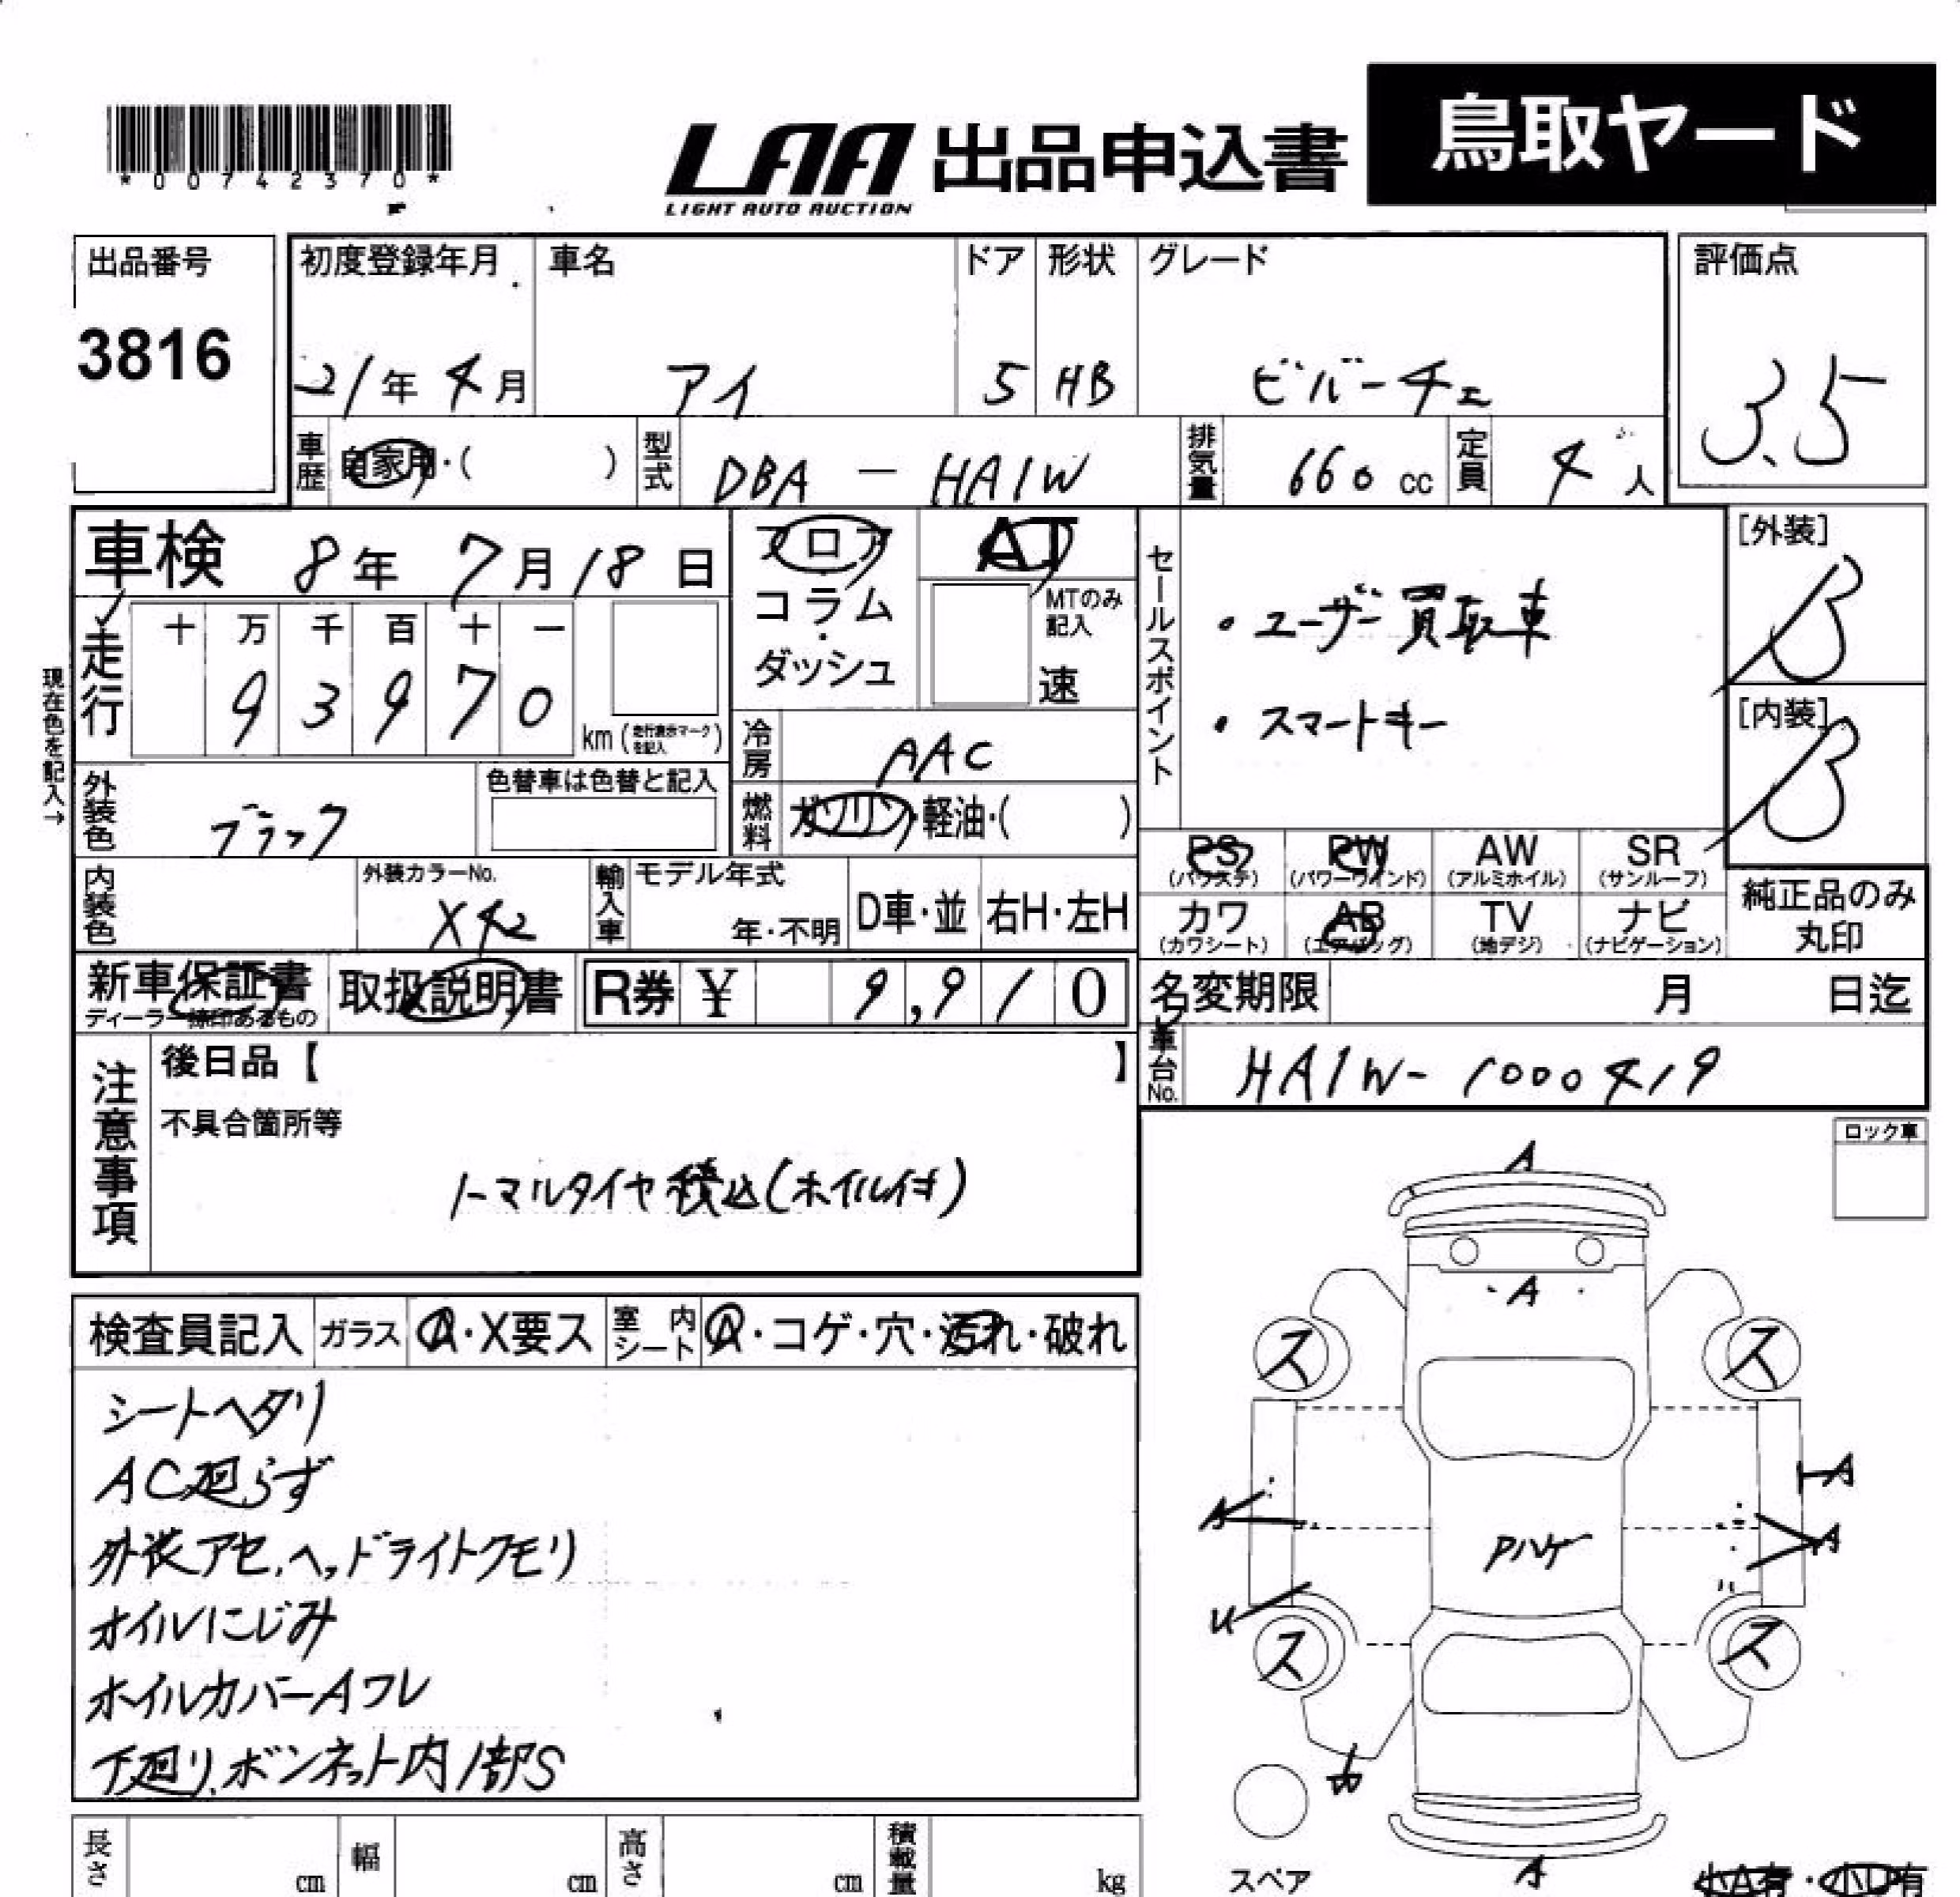 *00742370*
LAA 出品申込書 鳥取ヤード
LIGHT AUTO AUCTION
出品番号 初度登録年月 車名 ドア 形状 グレード 評価点
3816 21年 4月 アイ 5 HB ビバーチェ 3.5
車歴 自家用・( ) 型式 DBA - HA1W 排気量 660 cc 定員 4 人
車検 8年 7月 18日 フロア AT セールスポイント [外装] B
コラム・ MTのみ記入
ダッシュ 速
・ユーザー買取車
・スマートキー
[内装] B
現在色を記入→
走行 十 万 千 百 十 一
9 3 9 7 0 km (走行表示マークを記入)
冷房 AAC
外装色 ブラック 色替車は色替と記入 燃料 ガソリン・軽油・( )
PS (パワステ) PW (パワーウインド) AW (アルミホイル) SR (サンルーフ)
内装色 外装カラーNo. X42 輸入車 モデル年式 年・不明 D車・並 右H・左H
カワ (カワシート) AB (エアバッグ) TV (地デジ) ナビ (ナビゲーション) 純正品のみ丸印
新車保証書 取扱説明書 R券 ¥ 9,910 名変期限 月 日迄
ディーラー捺印あるもの
車台No. HA1W-1000419
注意事項 後日品【 】
不具合箇所等
ノーマルタイヤ積込(ホイル付)
ロック車
検査員記入 ガラス A・X要ス 室内シート A・コゲ・穴・汚れ・破れ
シートヘタリ
AC廻らず
外装アセ、ヘッドライトクモリ
オイルにじみ
ホイルカバーAワレ
下廻り、ボンネット内1部S
A
A
ス ス
A
A A
Pハゲ
U
ス ス
A
長さ cm 幅 cm 高さ cm 積載量 kg スペア 小A有・小D有